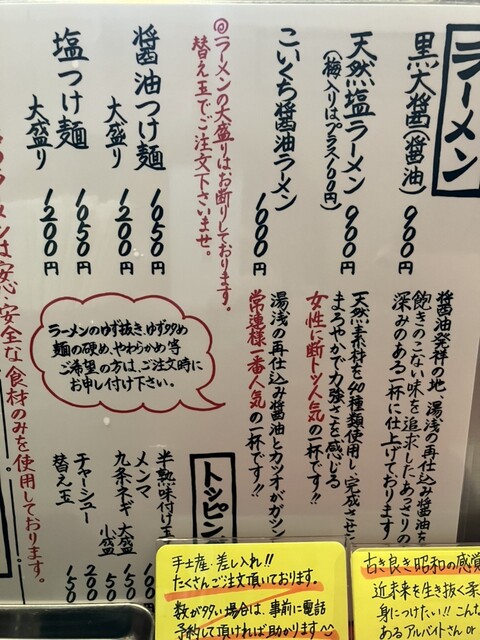 ラーメン
黒大醤(醤油) 900円
醤油発祥の地 湯浅の再仕込み醤油を
飽きのこない味を追求したあっさりの
深みのある一杯に仕上げております
天然塩ラーメン 900円
(梅入りはプラス100円)
天然素材を40種類使用し、完成させた
まろやかで力強さを感じる
女性に断トツ人気の一杯です!!
こいくち醤油ラーメン 1000円
湯浅の再仕込み醤油とカツオがガツン
常連様一番人気の一杯です!!
◎ラーメンの大盛りはお断りしております。
替え玉でご注文下さいませ。
醤油つけ麺 1050円
大盛り 1200円
塩つけ麺 1050円
大盛り 1200円
ラーメンは安心・安全な食材のみを使用しております。
ラーメンのゆず抜き、ゆず多め
麺の硬め、やわらかめ等
ご希望の方は、ご注文時に
お申し付け下さい。
トッピン
半熟味付け
メンマ 150
九条ネギ 大盛 150
小盛 50
チャーシュー 200
替え玉 150
手土産・差し入れ!!
たくさんご注文頂いております。
数が多い場合は、事前に電話
予約して頂ければ助かります
古き良き昭和の感覚
近未来を生き抜く
身につけたい!! こんな
あるアルバイトさん or